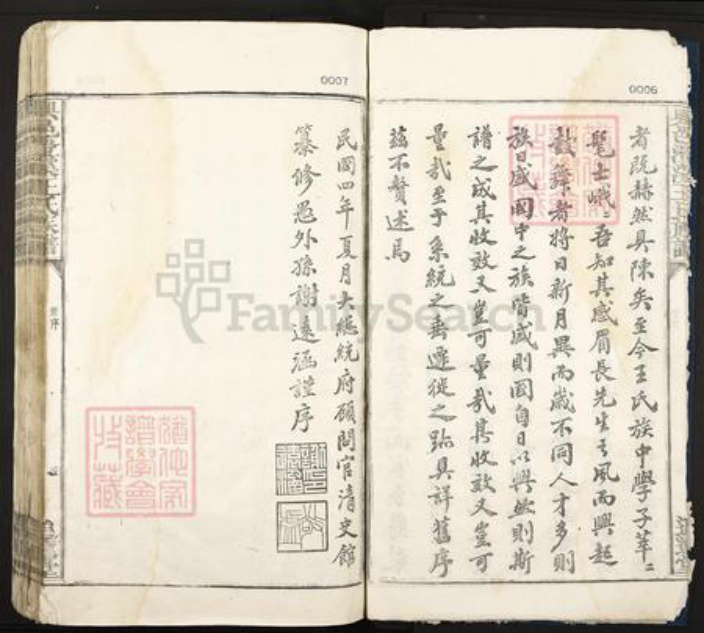 0006
者既赫然具陳矣至今王氏族中學子莘〻
髦士峨〻吾知其感眉長先生之風而興起
鼓舞者將日新月異而歲不同人才多則
族日盛國中之族皆盛則國自日以興然則斯
譜之成其收效又豈可量哉其收效又豈可
量哉至于系統之垂遷徙之跡具詳舊序
茲不贅述焉
0007
民國四年夏月大總統府顧問官清史館
纂修愚外孫謝遠涵謹序
王氏族譜
序
譜學會
收藏
FamilySearch